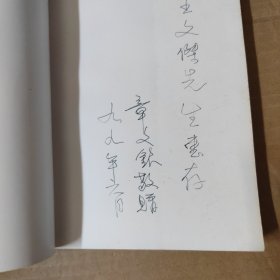 王文傑先生惠存
章文欽敬贈
九九年六月